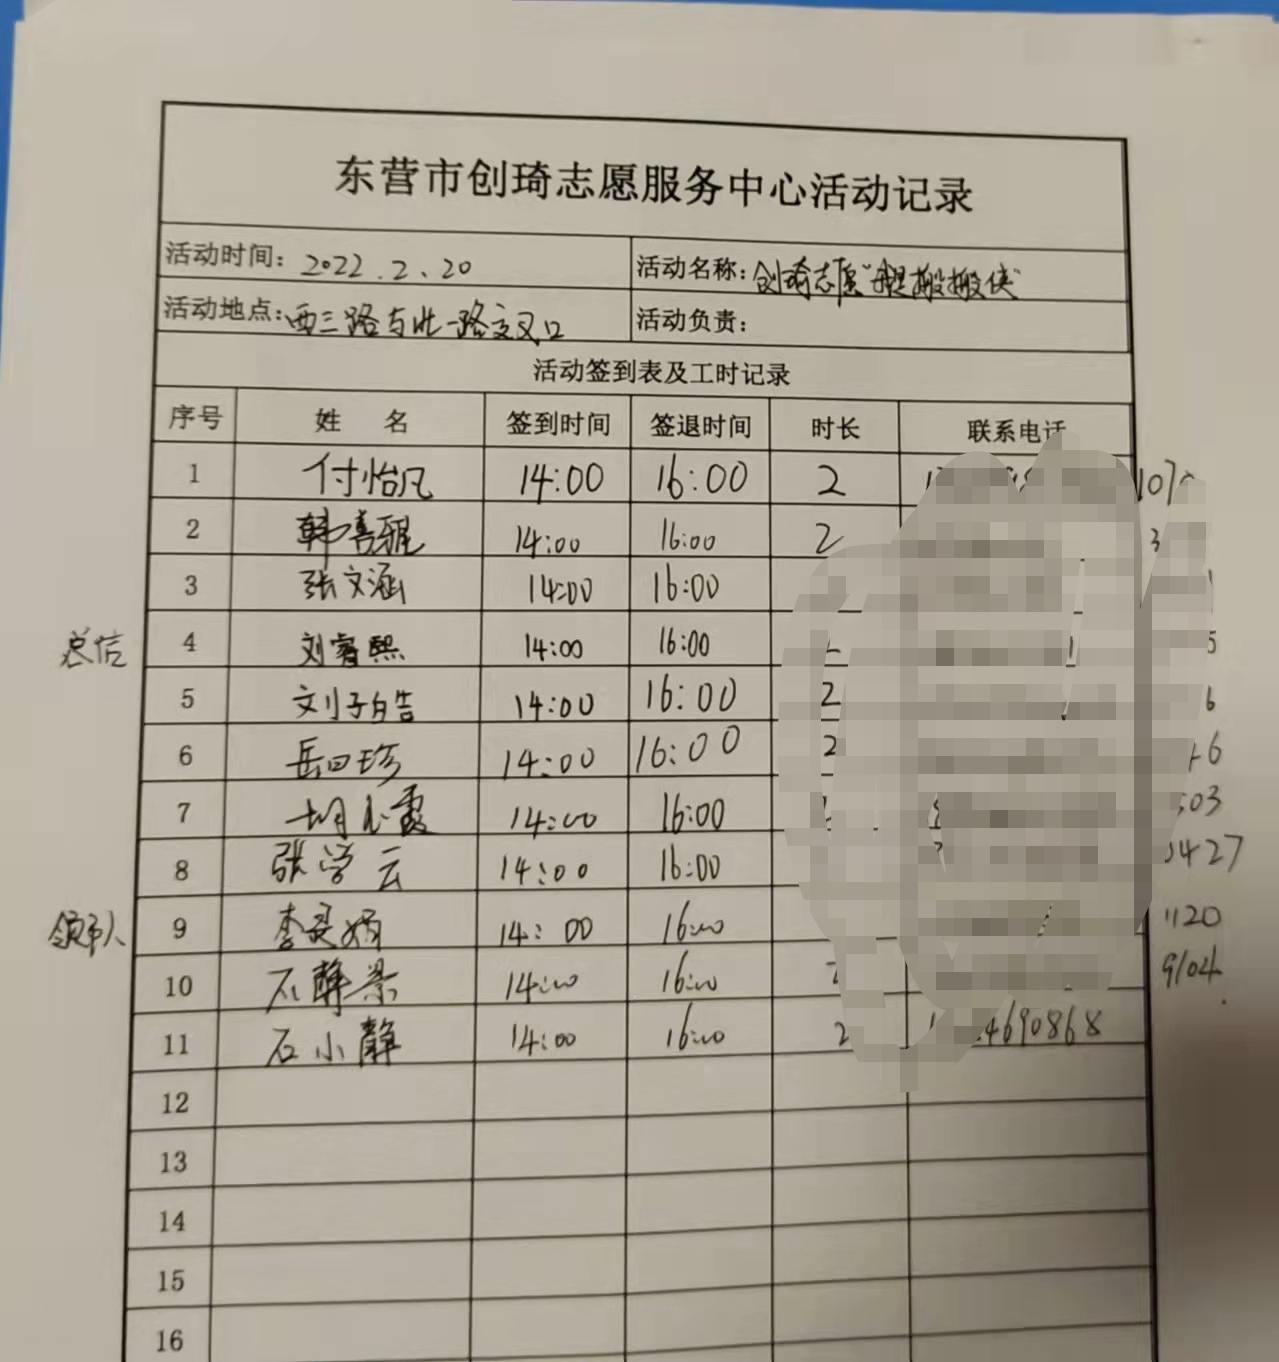 东营市创琦志愿服务中心活动记录
活动时间：2022.2.20 活动名称：创琦志愿“我是搬搬侠”
活动地点：西三路与北一路交叉口 活动负责：
活动签到表及工时记录
序号 姓 名 签到时间 签退时间 时长 联系电话
1 付怡凡 14:00 16:00 2
2 韩喜雅 14:00 16:00 2
3 张文涵 14:00 16:00
总信 4 刘睿熙 14:00 16:00
5 刘子皓 14:00 16:00 2
6 岳四珍 14:00 16:00 2
7 胡心霞 14:00 16:00
8 张学云 14:00 16:00 0427
领队 9 李 14:00 16:00 1120
10 石静 14:00 16:00 9104
11 石小静 14:00 16:00 2 4690868
12
13
14
15
16